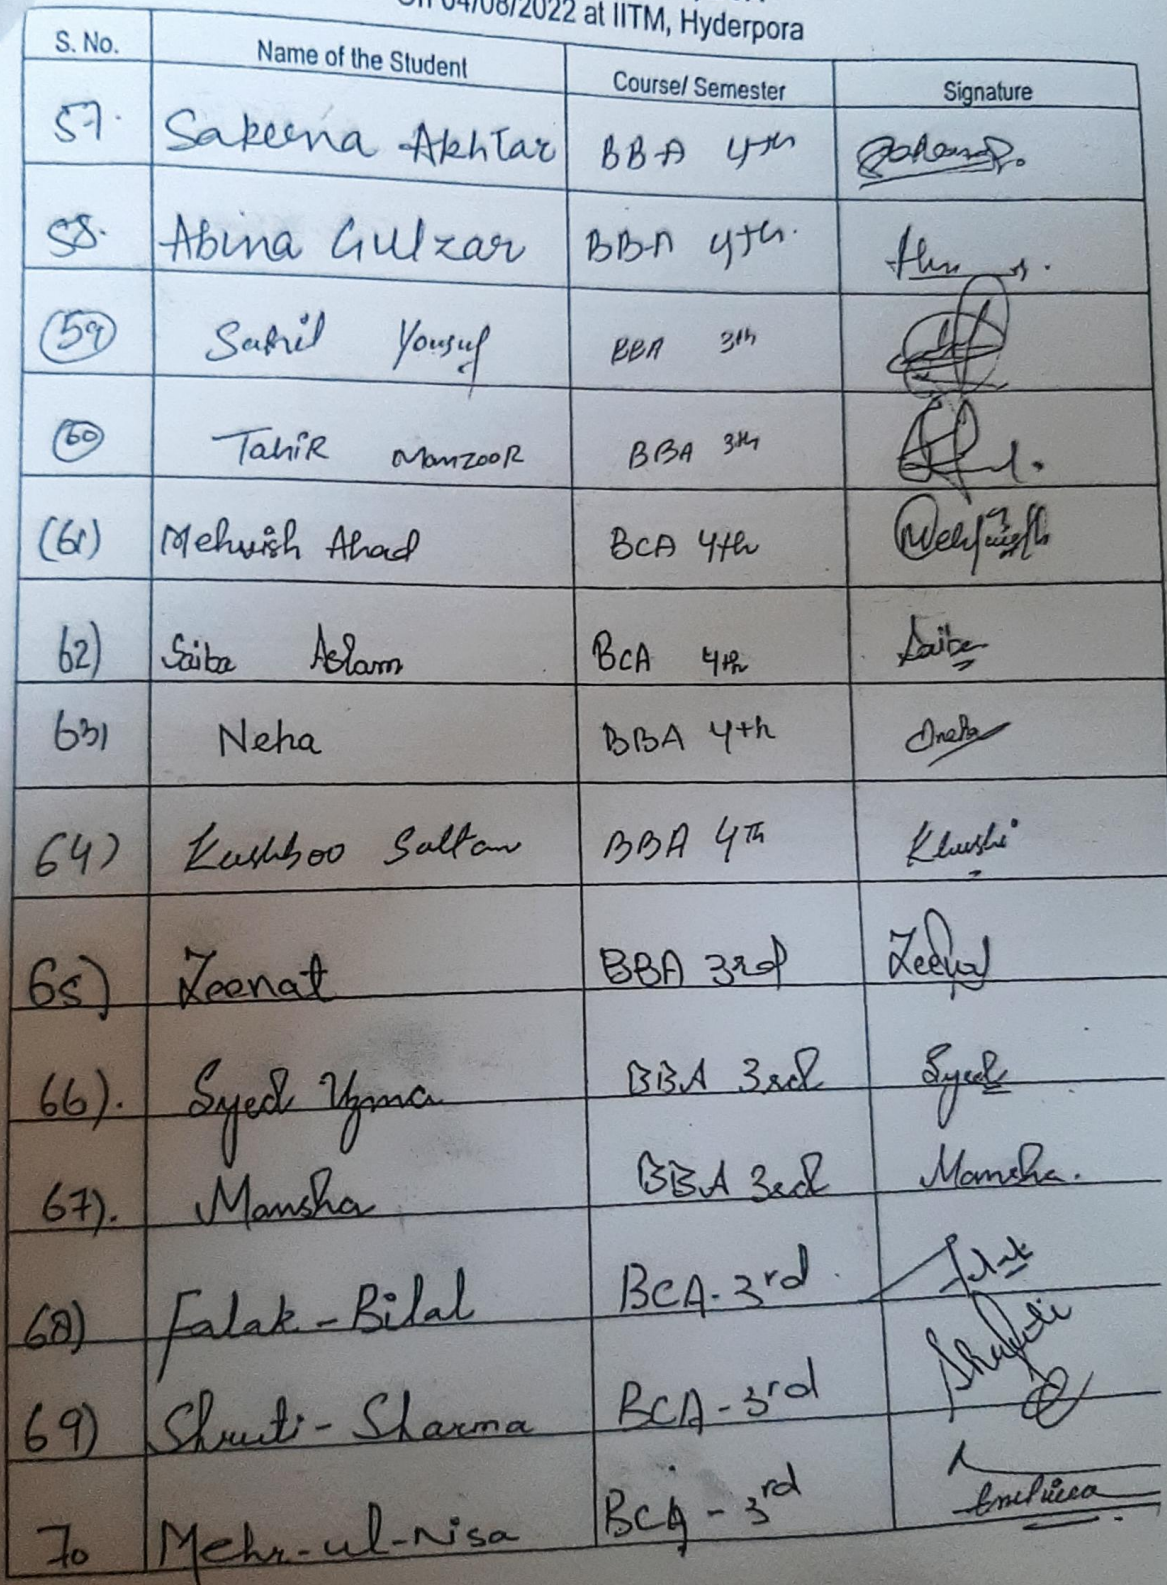 On 04/08/2022 at IITM, Hyderpora
S. No. Name of the Student Course/ Semester Signature
57. Sakeena Akhtar BBA 4th
58. Abina Gulzar BBA 4th.
59 Sahil Yousuf BBA 3th
60 Tahir Manzoor BBA 3th
(61) Mehvish Ahad BCA 4th
62) Saiba Aslam BCA 4th Saiba
63) Neha BBA 4th Neha
64) Kushboo Saltan BBA 4th Khushi
65) Zeenat BBA 3rd Zeenat
66). Syed Uzma BBA 3rd Syed
67). Mansha BBA 3rd Mansha.
68) Falak-Bilal BCA-3rd. Falak
69) Shruti-Sharma BCA-3rd Shruti
70 Mehr-ul-Nisa BCA-3rd